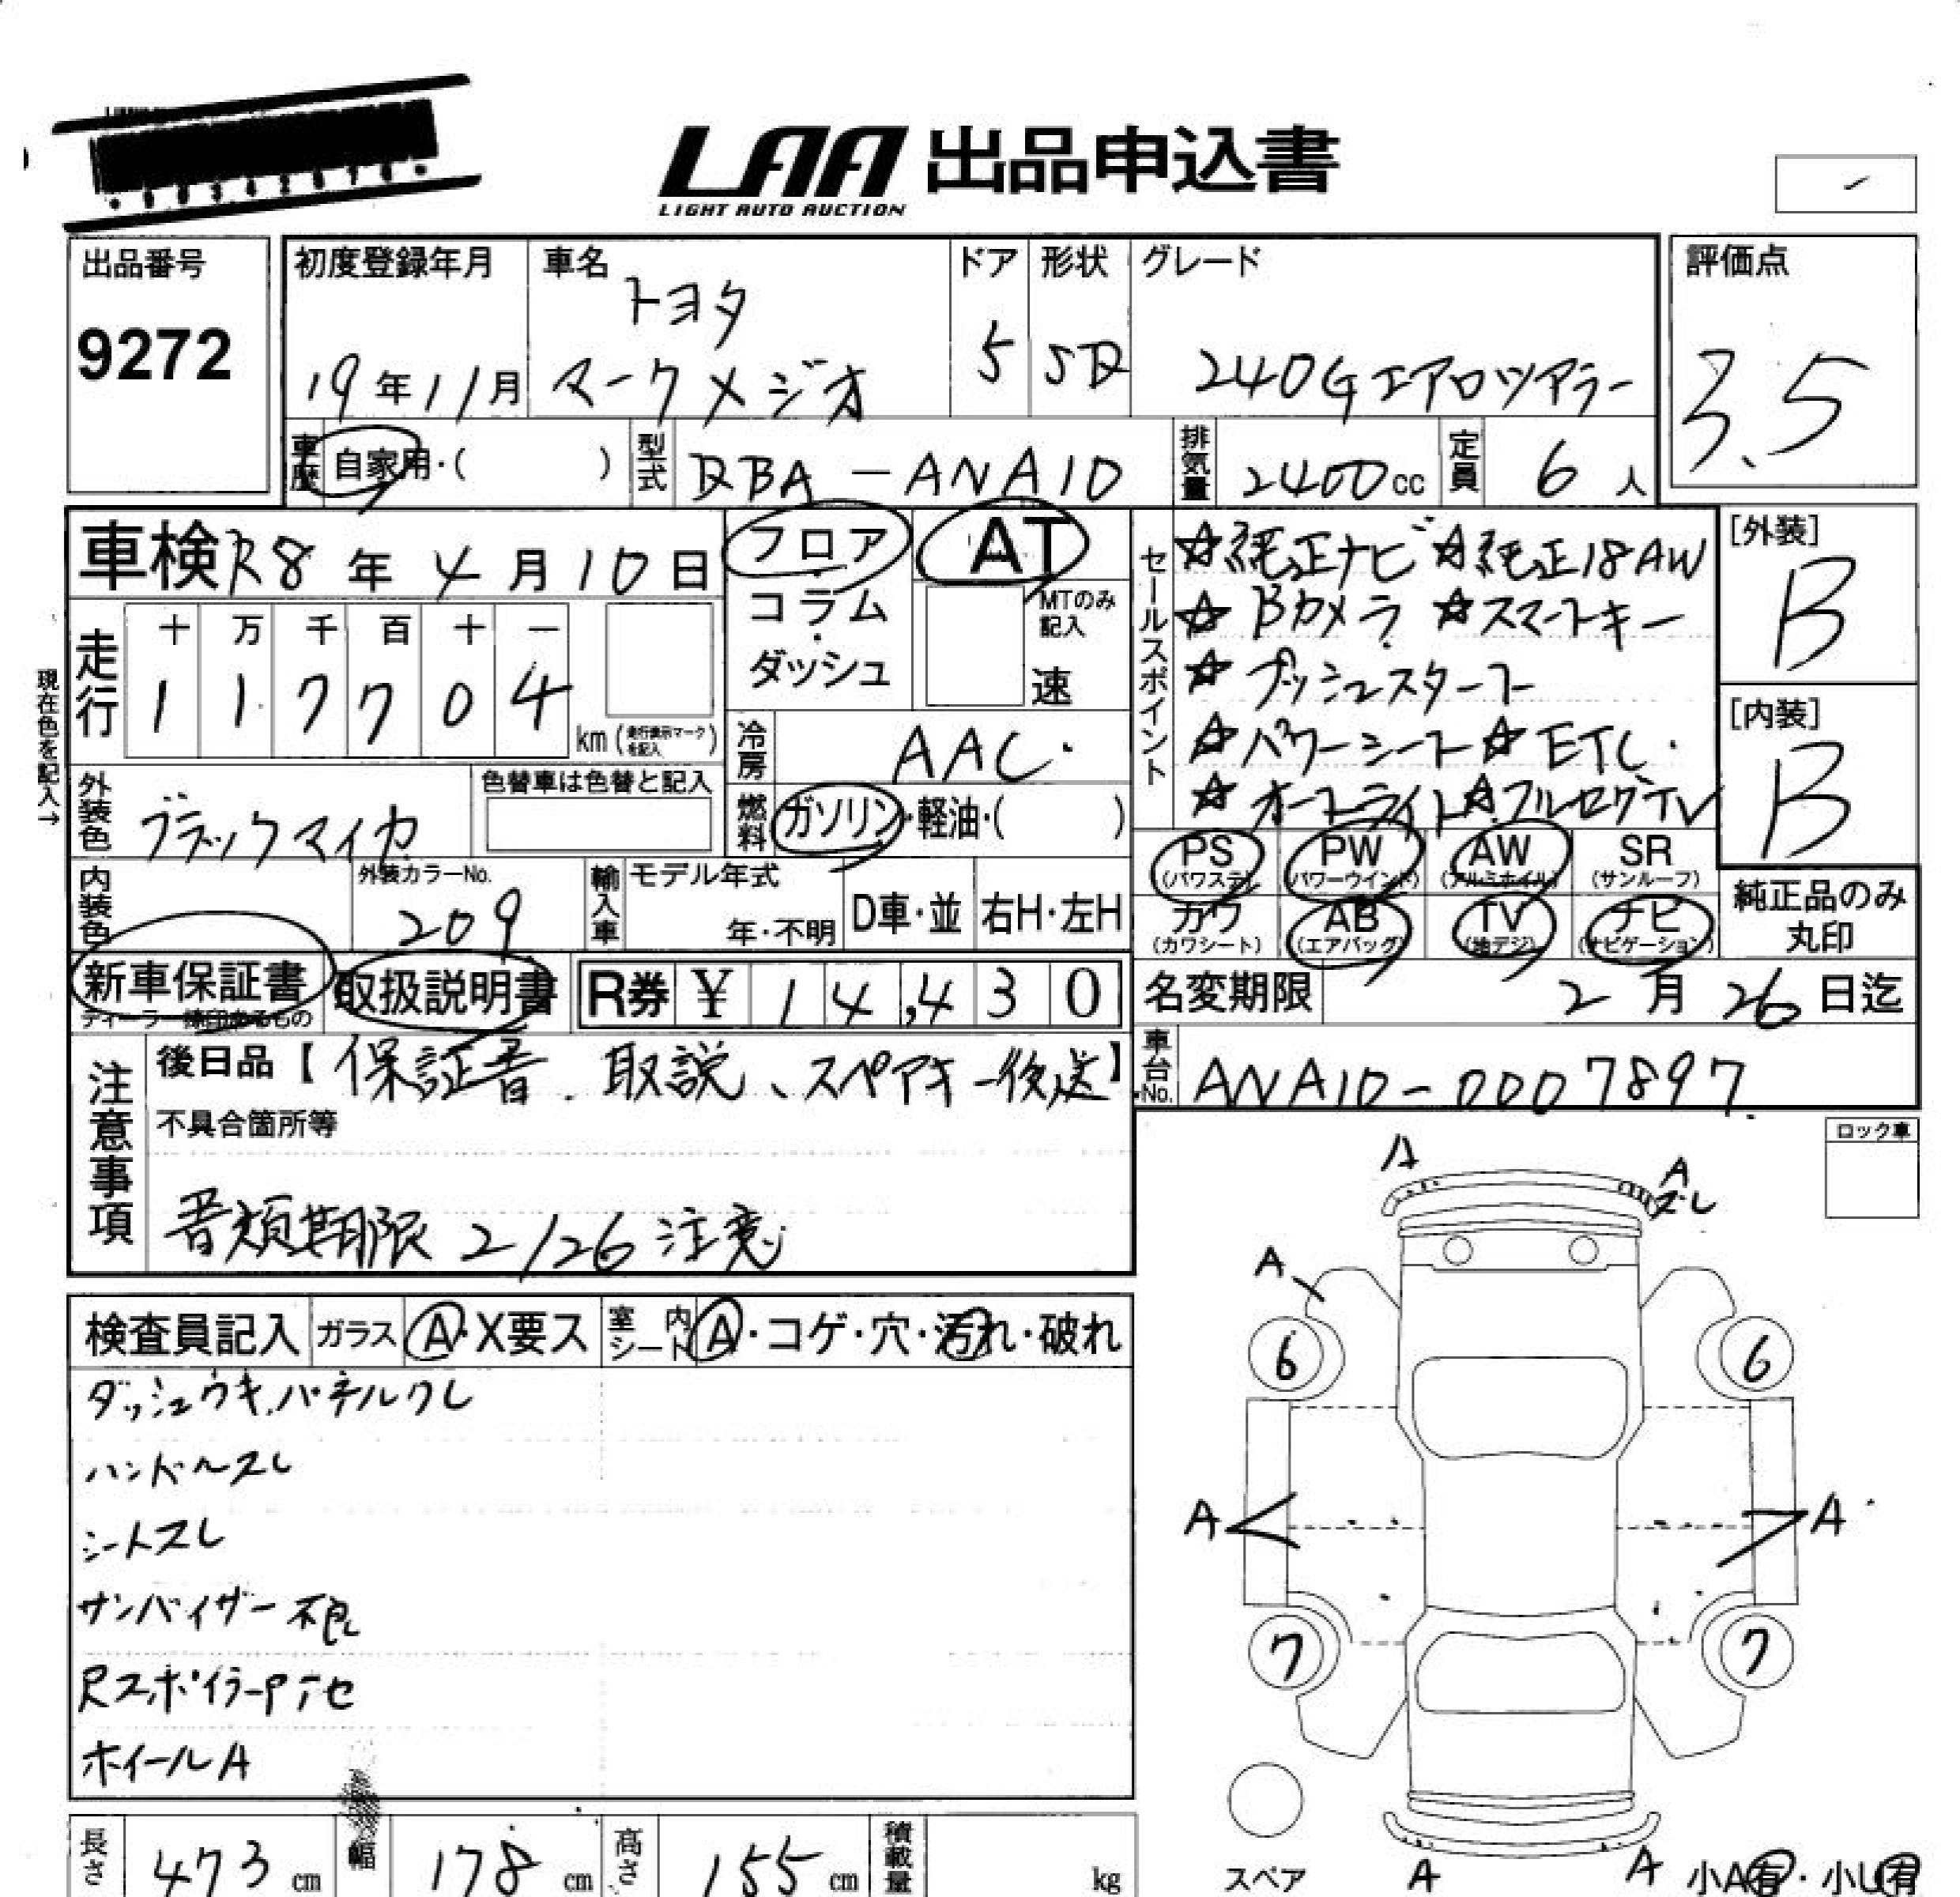 LAA 出品申込書
LIGHT AUTO AUCTION
出品番号
9272
初度登録年月
19年11月
車名
トヨタ
マークXジオ
ドア
5
形状
5D
グレード
240Gエアロツアラー
評価点
3.5
車歴 自家用・( )
型式 DBA-ANA10
排気量 2400cc
定員 6人
車検 R8年4月10日
フロア・コラム・ダッシュ
AT
MTのみ記入
速
走行
十 万 千 百 十 一
1 1 7 7 0 4
km(走行表示マークを記入)
現在色を記入→
冷房 AAC
外装色 ブラックマイカ
色替車は色替と記入
燃料 ガソリン・軽油・( )
内装色
外装カラーNo.
209
輸入車
モデル年式
年・不明
D車・並
右H・左H
新車保証書
取扱説明書
R券 ¥ 14,430
セールスポイント
☆純正ナビ ☆純正18AW
☆Bカメラ ☆スマートキー
☆プッシュスタート
☆パワーシート ☆ETC
☆オートライト ☆フルセグTV
PS(パワステ) PW(パワーウインド) AW(アルミホイル) SR(サンルーフ)
カワ(カワシート) AB(エアバッグ) TV(地デジ) ナビ(ナビゲーション)
[外装]
B
[内装]
B
純正品のみ
丸印
名変期限 2月26日迄
車台No. ANA10-0007897
注意事項
後日品【保証書、取説、スペアキー後送】
不具合箇所等
書類期限 2/26 注意
ロック車
検査員記入 ガラス A・X要ス 室内シート A・コゲ・穴・汚れ・破れ
ダッシュウキ、パネルクレ
ハンドルスレ
シートスレ
サンバイザー不良
Rスポイラー
ホイールA
A
A
スレ
A
6
6
A
A
7
7
スペア
A
A
小A有・小U有
長さ 473cm
幅 178cm
高さ 155cm
積載量 kg